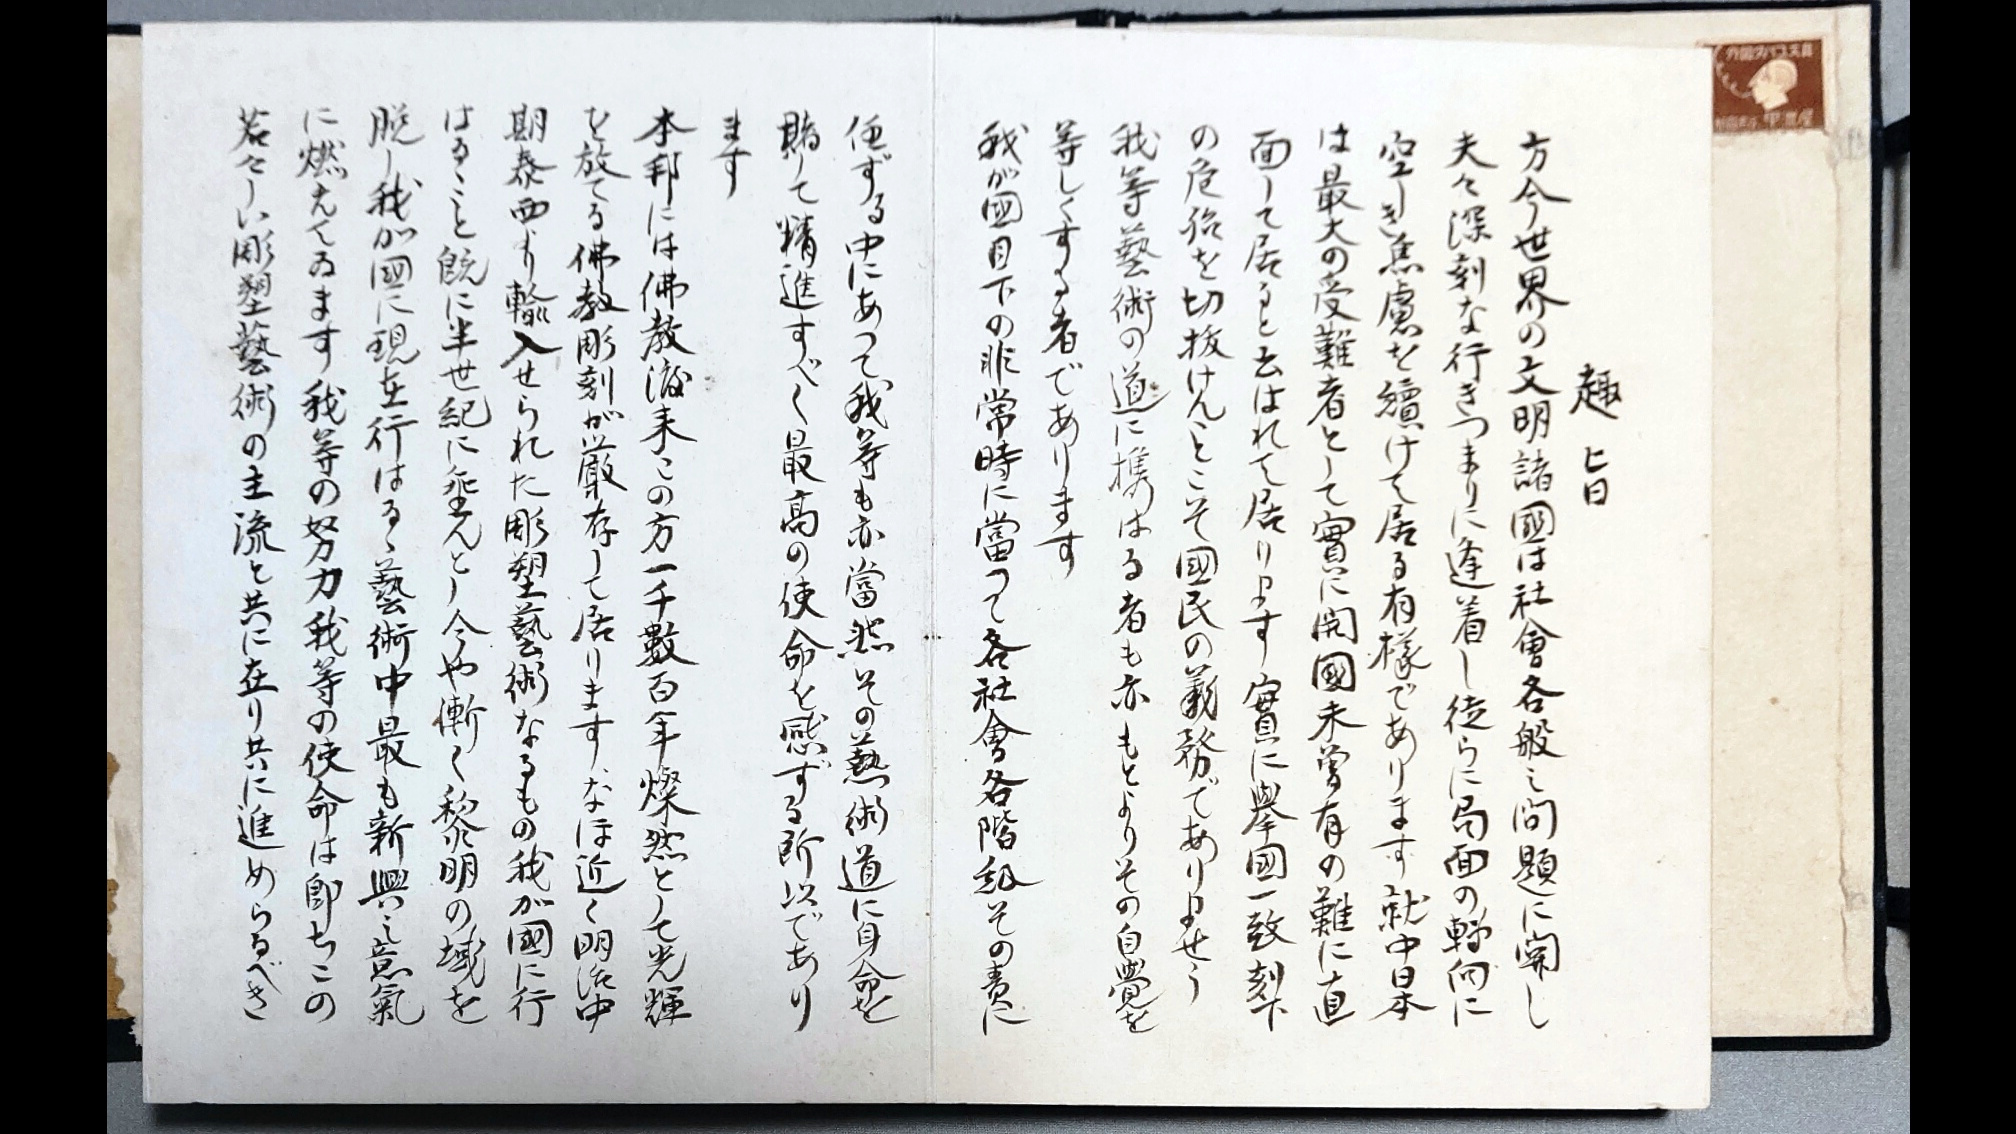 趣旨
方今世界の文明諸國は社會各般之問題に関し
夫々深刻な行きつまりに逢着し徒らに局面の轉向に
空しき焦慮を續けて居る有様であります就中日本
は最大の受難者として實に開國未曽有の難に直
面して居ると云はれて居ります實に擧國一致刻下
の危殆を切抜けんことこそ國民の義務でありませう
我等藝術の道に携はる者も亦もとよりその自覺を
等しくする者であります
我が國目下の非常時に當つて各社會各階級その責に
任ずる中にあつて我等も亦當然その藝術道に身命を
賭して精進すべく最高の使命を感ずる所以であり
ます
本邦には佛教渡来この方一千數百年燦然として光輝
を放てる佛教彫刻が厳存して居りますなほ近く明治中
期泰西より輸入せられた彫塑藝術なるもの我が國に行
はるゝこと既に半世紀に垂んとし今や漸く黎明の域を
脱し我が國に現在行はるゝ藝術中最も新興之意氣
に燃えてゐます我等の努力我等の使命は即ちこの
若々しい彫塑藝術の主流と共に在り共に進めらるべき